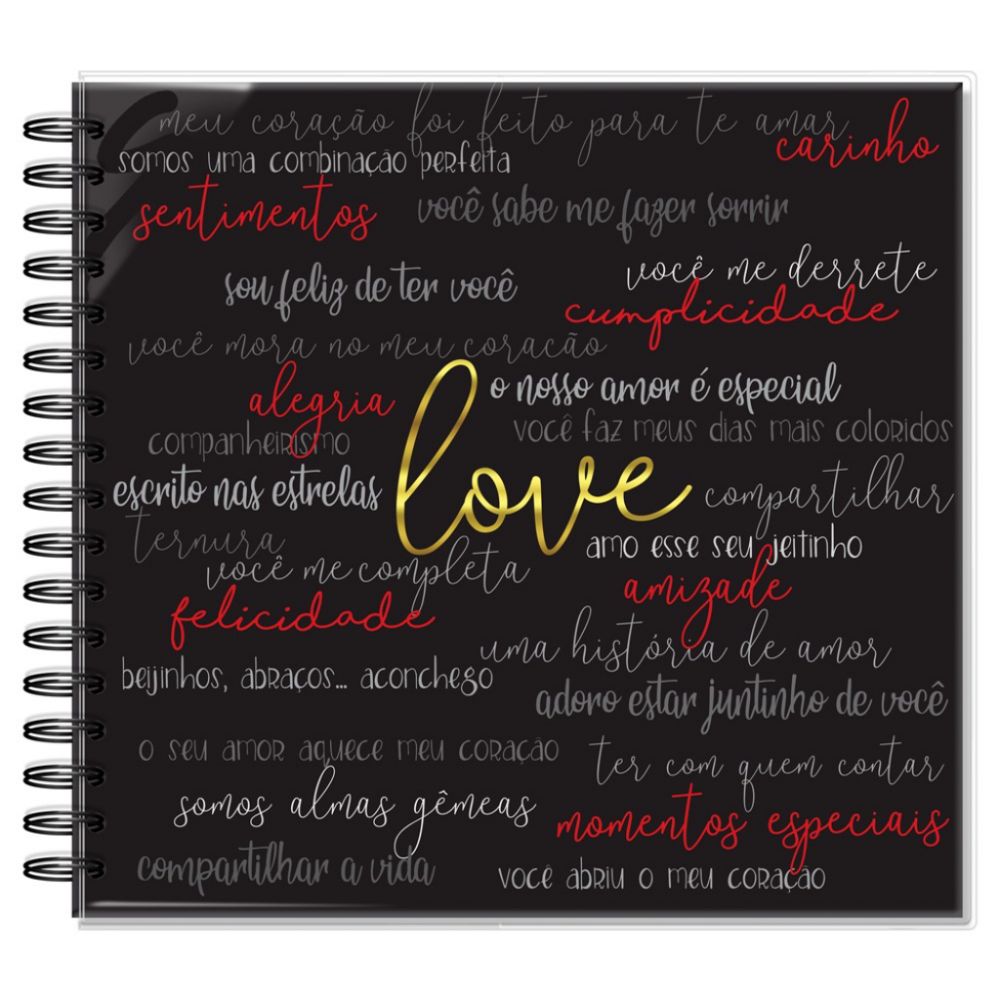 meu coração foi feito para te amar
carinho
somos uma combinação perfeita
sentimentos
você sabe me fazer sorrir
você me derrete
sou feliz de ter você
cumplicidade
você mora no meu coração
o nosso amor é especial
alegria
você faz meus dias mais coloridos
companheirismo
love
escrito nas estrelas
compartilhar
ternura
amo esse seu jeitinho
você me completa
amizade
felicidade
uma história de amor
beijinhos, abraços... aconchego
adoro estar juntinho de você
o seu amor aquece meu coração
ter com quem contar
somos almas gêmeas
momentos especiais
compartilhar a vida
você abriu o meu coração